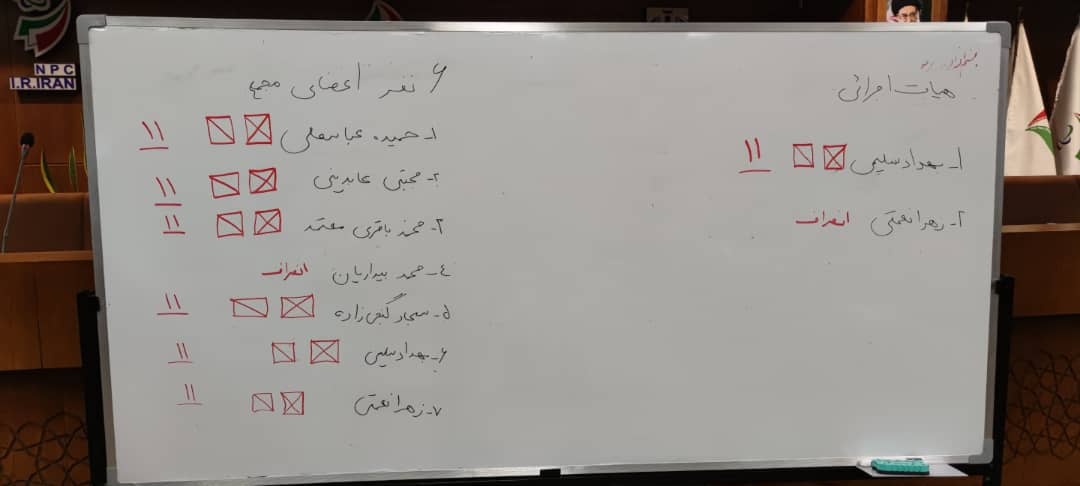 NPC
I.R.IRAN
هیات اجرائی
۱- بهداد سلیمی ۱۱
۲- زهرا نعمتی انصراف
۶ نفر اعضای مجمع
۱- حمیده عباسعلی ۱۱
۲- مجتبی عابدینی ۱۱
۳- محمد باقری معتمد ۱۱
٤- محمد بیداریان انصراف
۵- سجاد گنج زاده ۱۱
۶- بهداد سلیمی ۱۱
۷- زهرا نعمتی ۱۱